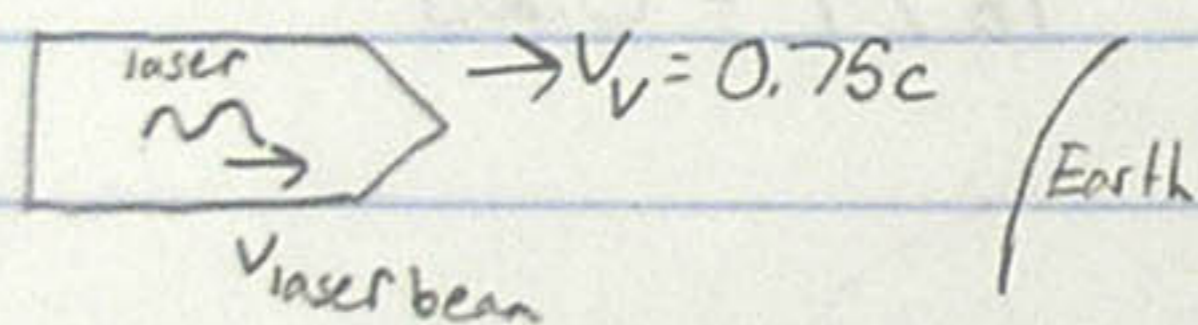 laser
→V_v = 0.75c
Earth
v_laser beam